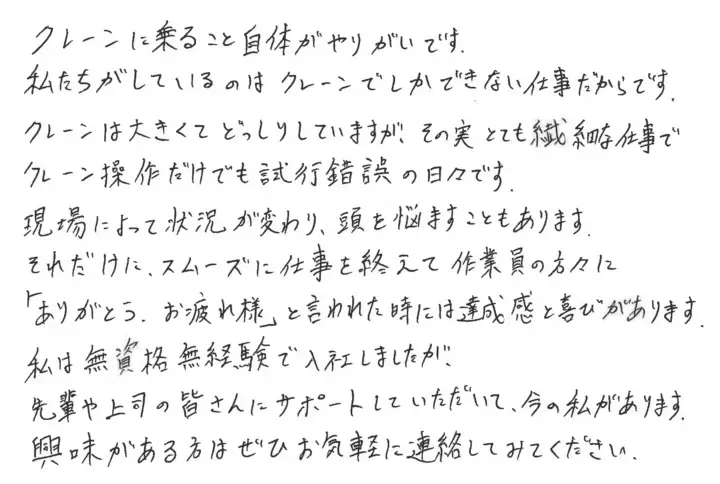 クレーンに乗ること自体がやりがいです.
私たちがしているのはクレーンでしかできない仕事だからです.
クレーンは大きくてどっしりしていますが、その実とても繊細な仕事で
クレーン操作だけでも試行錯誤の日々です.
現場によって状況が変わり、頭を悩ますこともあります.
それだけに、スムーズに仕事を終えて作業員の方々に
「ありがとう. お疲れ様」と言われた時には達成感と喜びがあります.
私は無資格無経験で入社しましたが、
先輩や上司の皆さんにサポートしていただいて、今の私があります.
興味がある方はぜひお気軽に連絡してみてください.